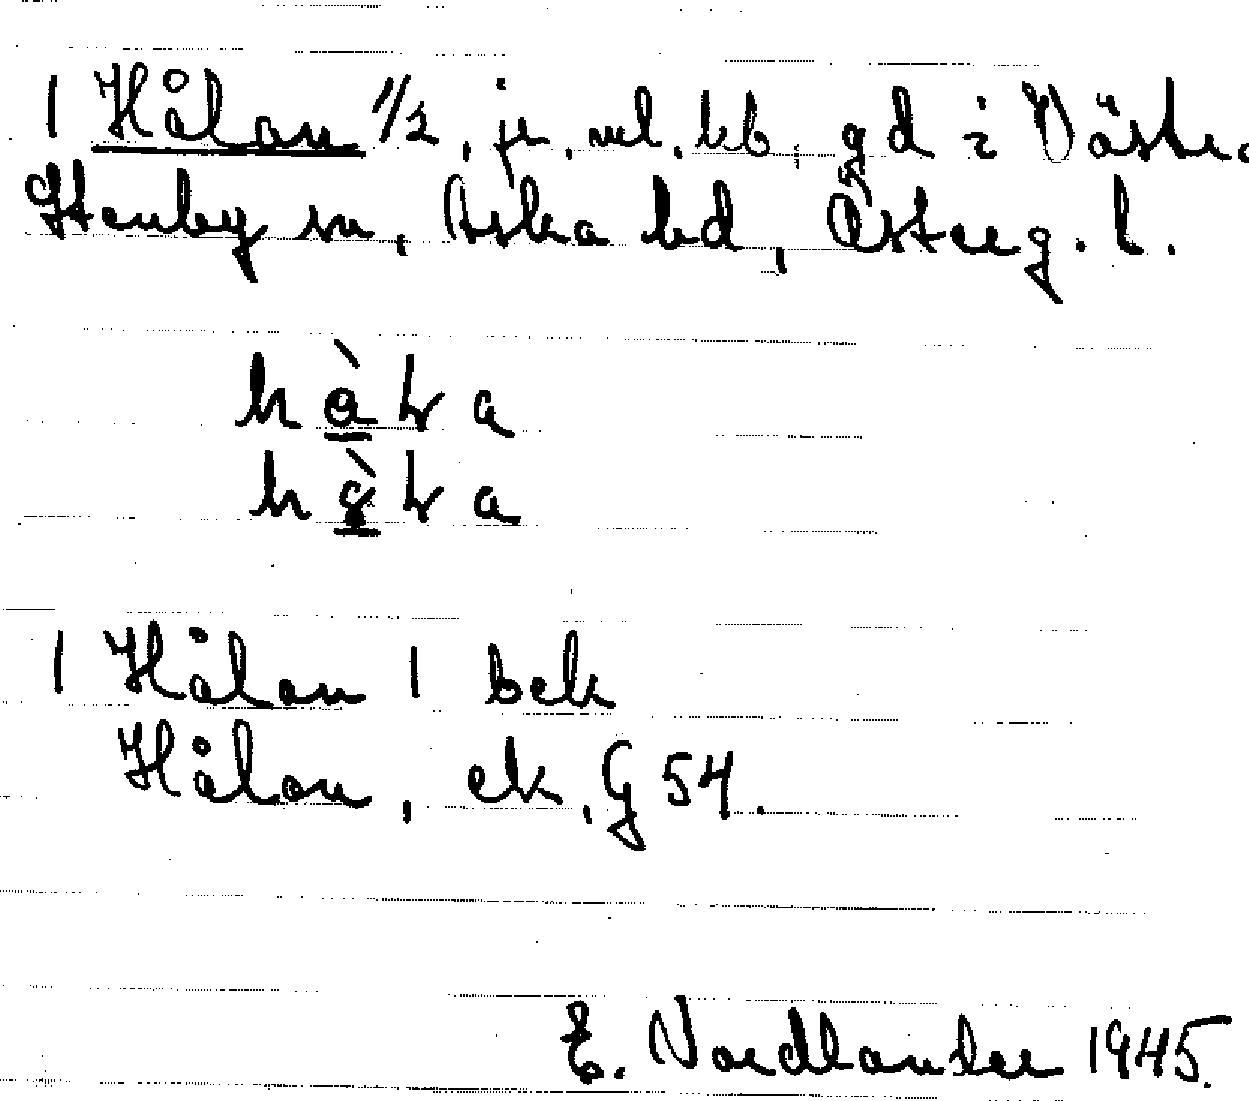 1 Hålan 1/2, jr, ml, kb, gd i Västra
Stenby sn, Aska hd, Österg. l.
hàla
hàla
1 Hålan 1 bek
Hålan, ek, G 54.
E. Nordlander 1945.